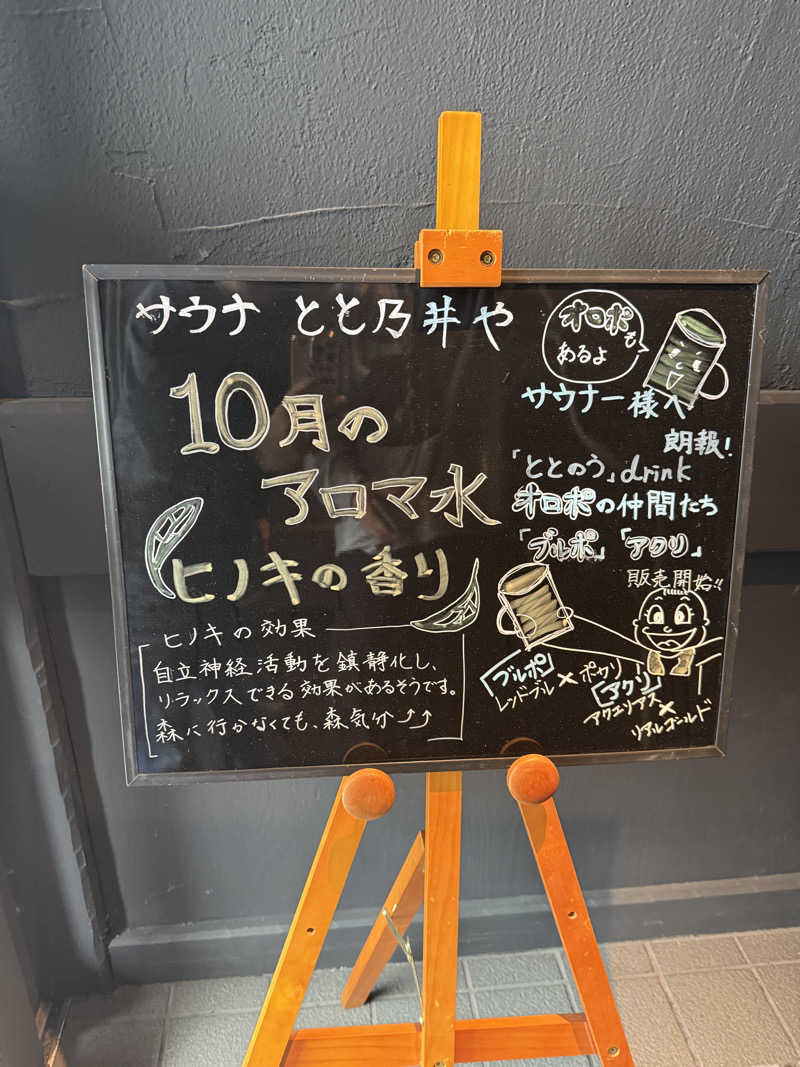 サウナ とと乃井や
10月の
アロマ水
ヒノキの香り
ヒノキの効果
自立神経活動を鎮静化し、
リラックスできる効果があるそうです。
森に行かなくても、森気分⤴⤴
オロポも
あるよ
サウナー様へ
朗報!
「ととのう」drink
オロポの仲間たち
「ブルポ」「アクリ」
販売開始!!
「ブルポ」
レッドブル×ポカリ
「アクリ」
アクエリアス×
リアルゴールド